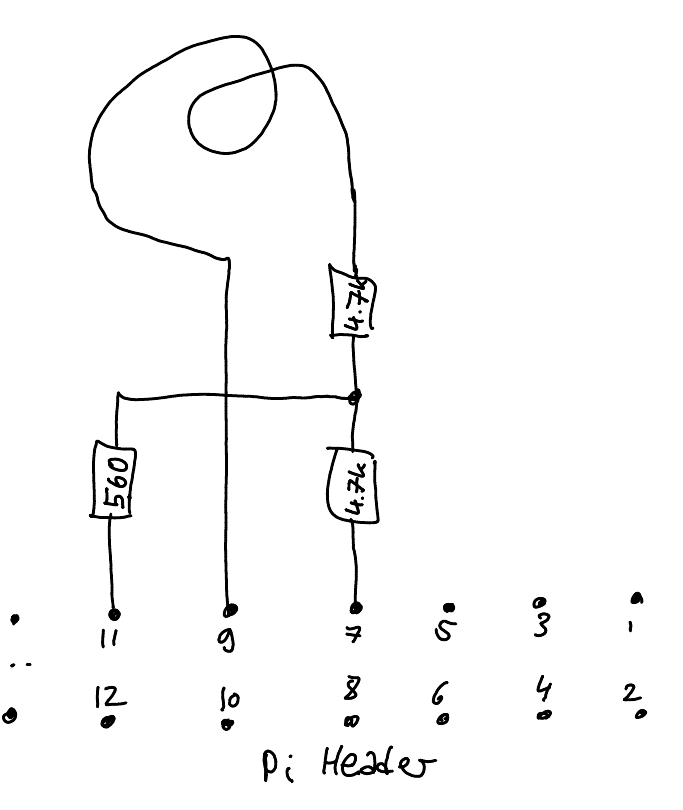 4.7k
560 4.7k
11 9 7 5 3 1
12 10 8 6 4 2
Pi Header